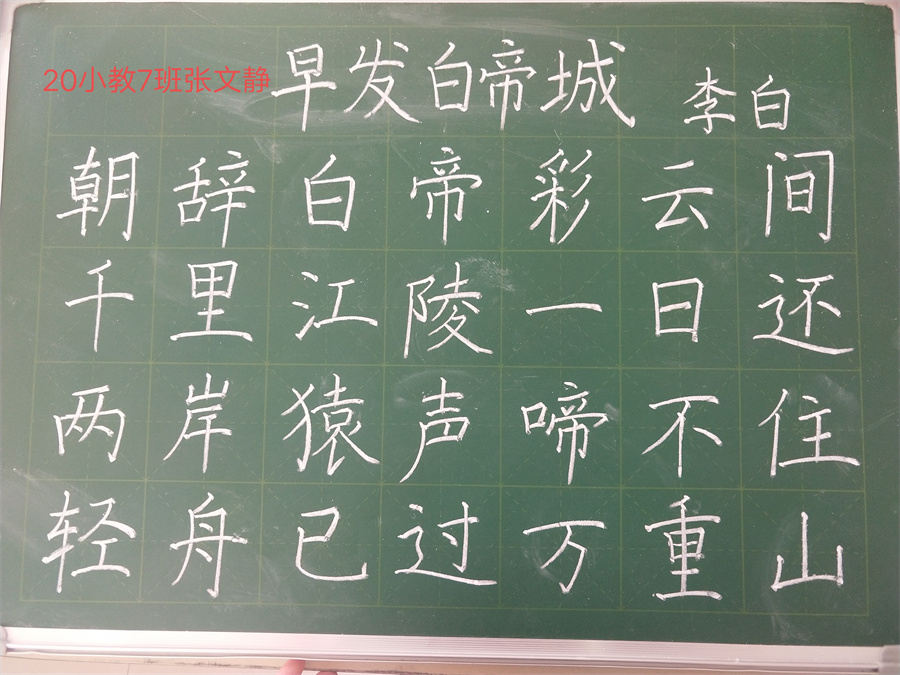 20小教7班张文静
早发白帝城 李白
朝辞白帝彩云间
千里江陵一日还
两岸猿声啼不住
轻舟已过万重山